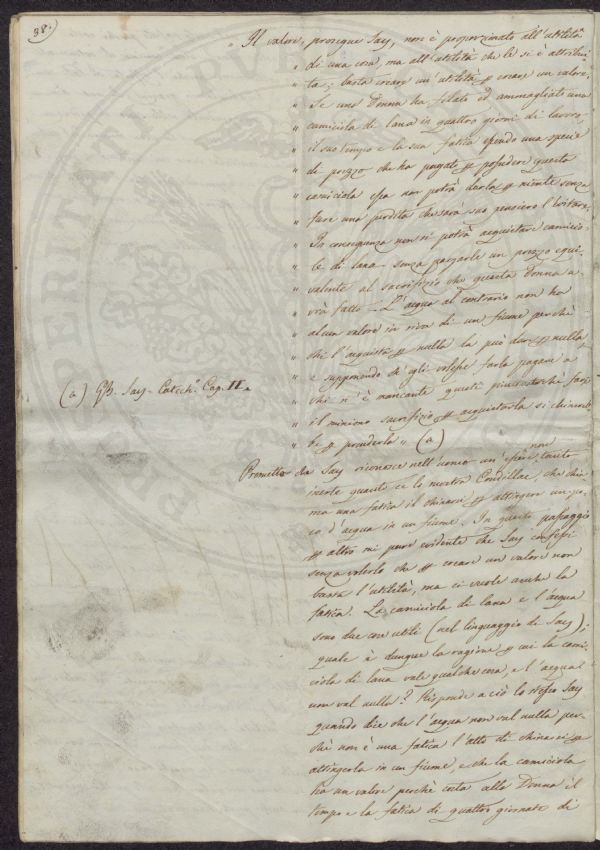 38.
„ Il valore, prosegue Say, non è proporzionato all'utilità
„ di una cosa, ma all'utilità che le si è attribui-
„ ta; basta creare un'utilità p creare un valore.
„ Se una Donna ha filato ed ammagliato una
„ camiciola di lana in quattro giorni di lavoro
„ il suo tempo e la sua fatica essendo una specie
„ di prezzo che ha pagato p possedere questa
„ camiciola essa non potrà darla p niente senza
„ fare una perdita che sarà suo pensiero l'evitare.
„ In conseguenza non si potrà acquistare camicio-
„ le di lana senza pagarle un prezzo equi-
„ valente al sacrifizio che questa Donna a-
„ vrà fatto. L'acqua al contrario non ha
„ alcun valore in riva di un fiume perchè
„ chi l'acquista p nulla la può dar p nulla
„ e supponendo ch'egli volesse farla pagare a
„ chi n'è mancante questi piuttostochè fare
„ il minimo sacrifizio p acquistarla si chinereb-
„ be p prenderla „ (a)
(a) GB. Say - Catech.° Cap. II.
Say riconosce nell'uomo un essere non tanto
inerte quanto ce lo mostra Condillac, che chia
ma una fatica il chinarsi p attingere un po-
co d'acqua in un fiume. In questo passaggio
p altro mi pare evidente che Say confessi
senza volerlo che p creare un valore non
basta l'utilità, ma ci vuole anche la
fatica. La camiciola di lana e l'acqua
sono due cose utili (nel linguaggio di Say);
quale è dunque la ragione p cui la cami-
ciola di lana vale qualche cosa, e l'acqua
non val nulla? Risponde a ciò lo stesso Say
quando dice che l'acqua non val nulla per-
chè non è una fatica l'atto di chinarsi p
attingerla in un fiume, e che la camiciola
ha un valore perchè costa alla Donna il
tempo e la fatica di quattro giornate di